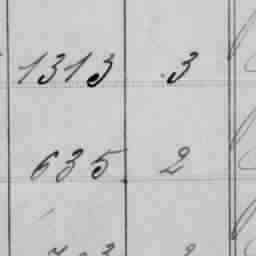 1313 3
635 2